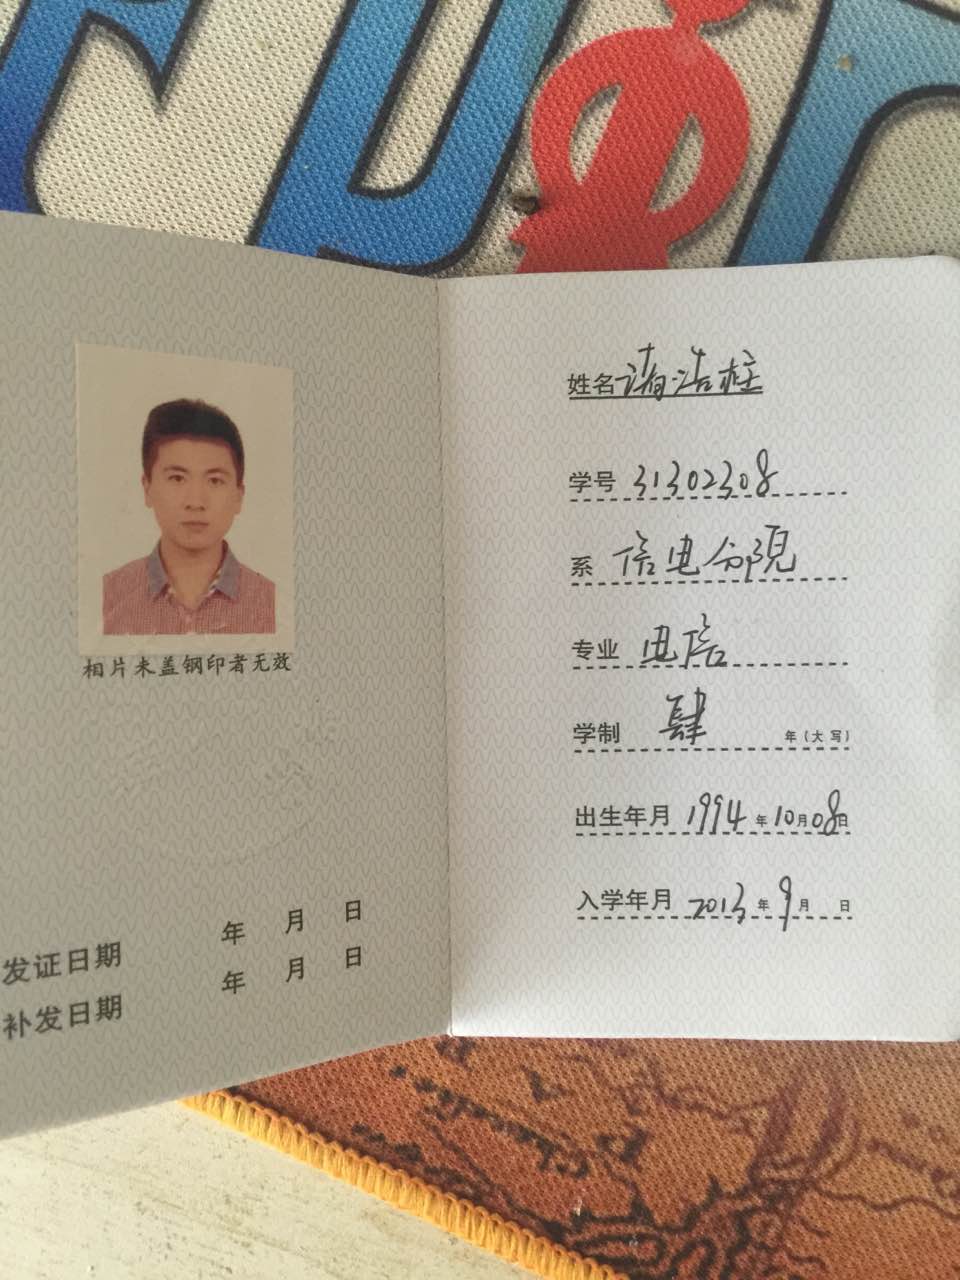 相片未盖钢印者无效
发证日期 年 月 日
补发日期 年 月 日
姓名 诸浩柱
学号 31302308
系 信电分院
专业 电信
学制 肆 年(大写)
出生年月 1994年10月08日
入学年月 2013年9月 日